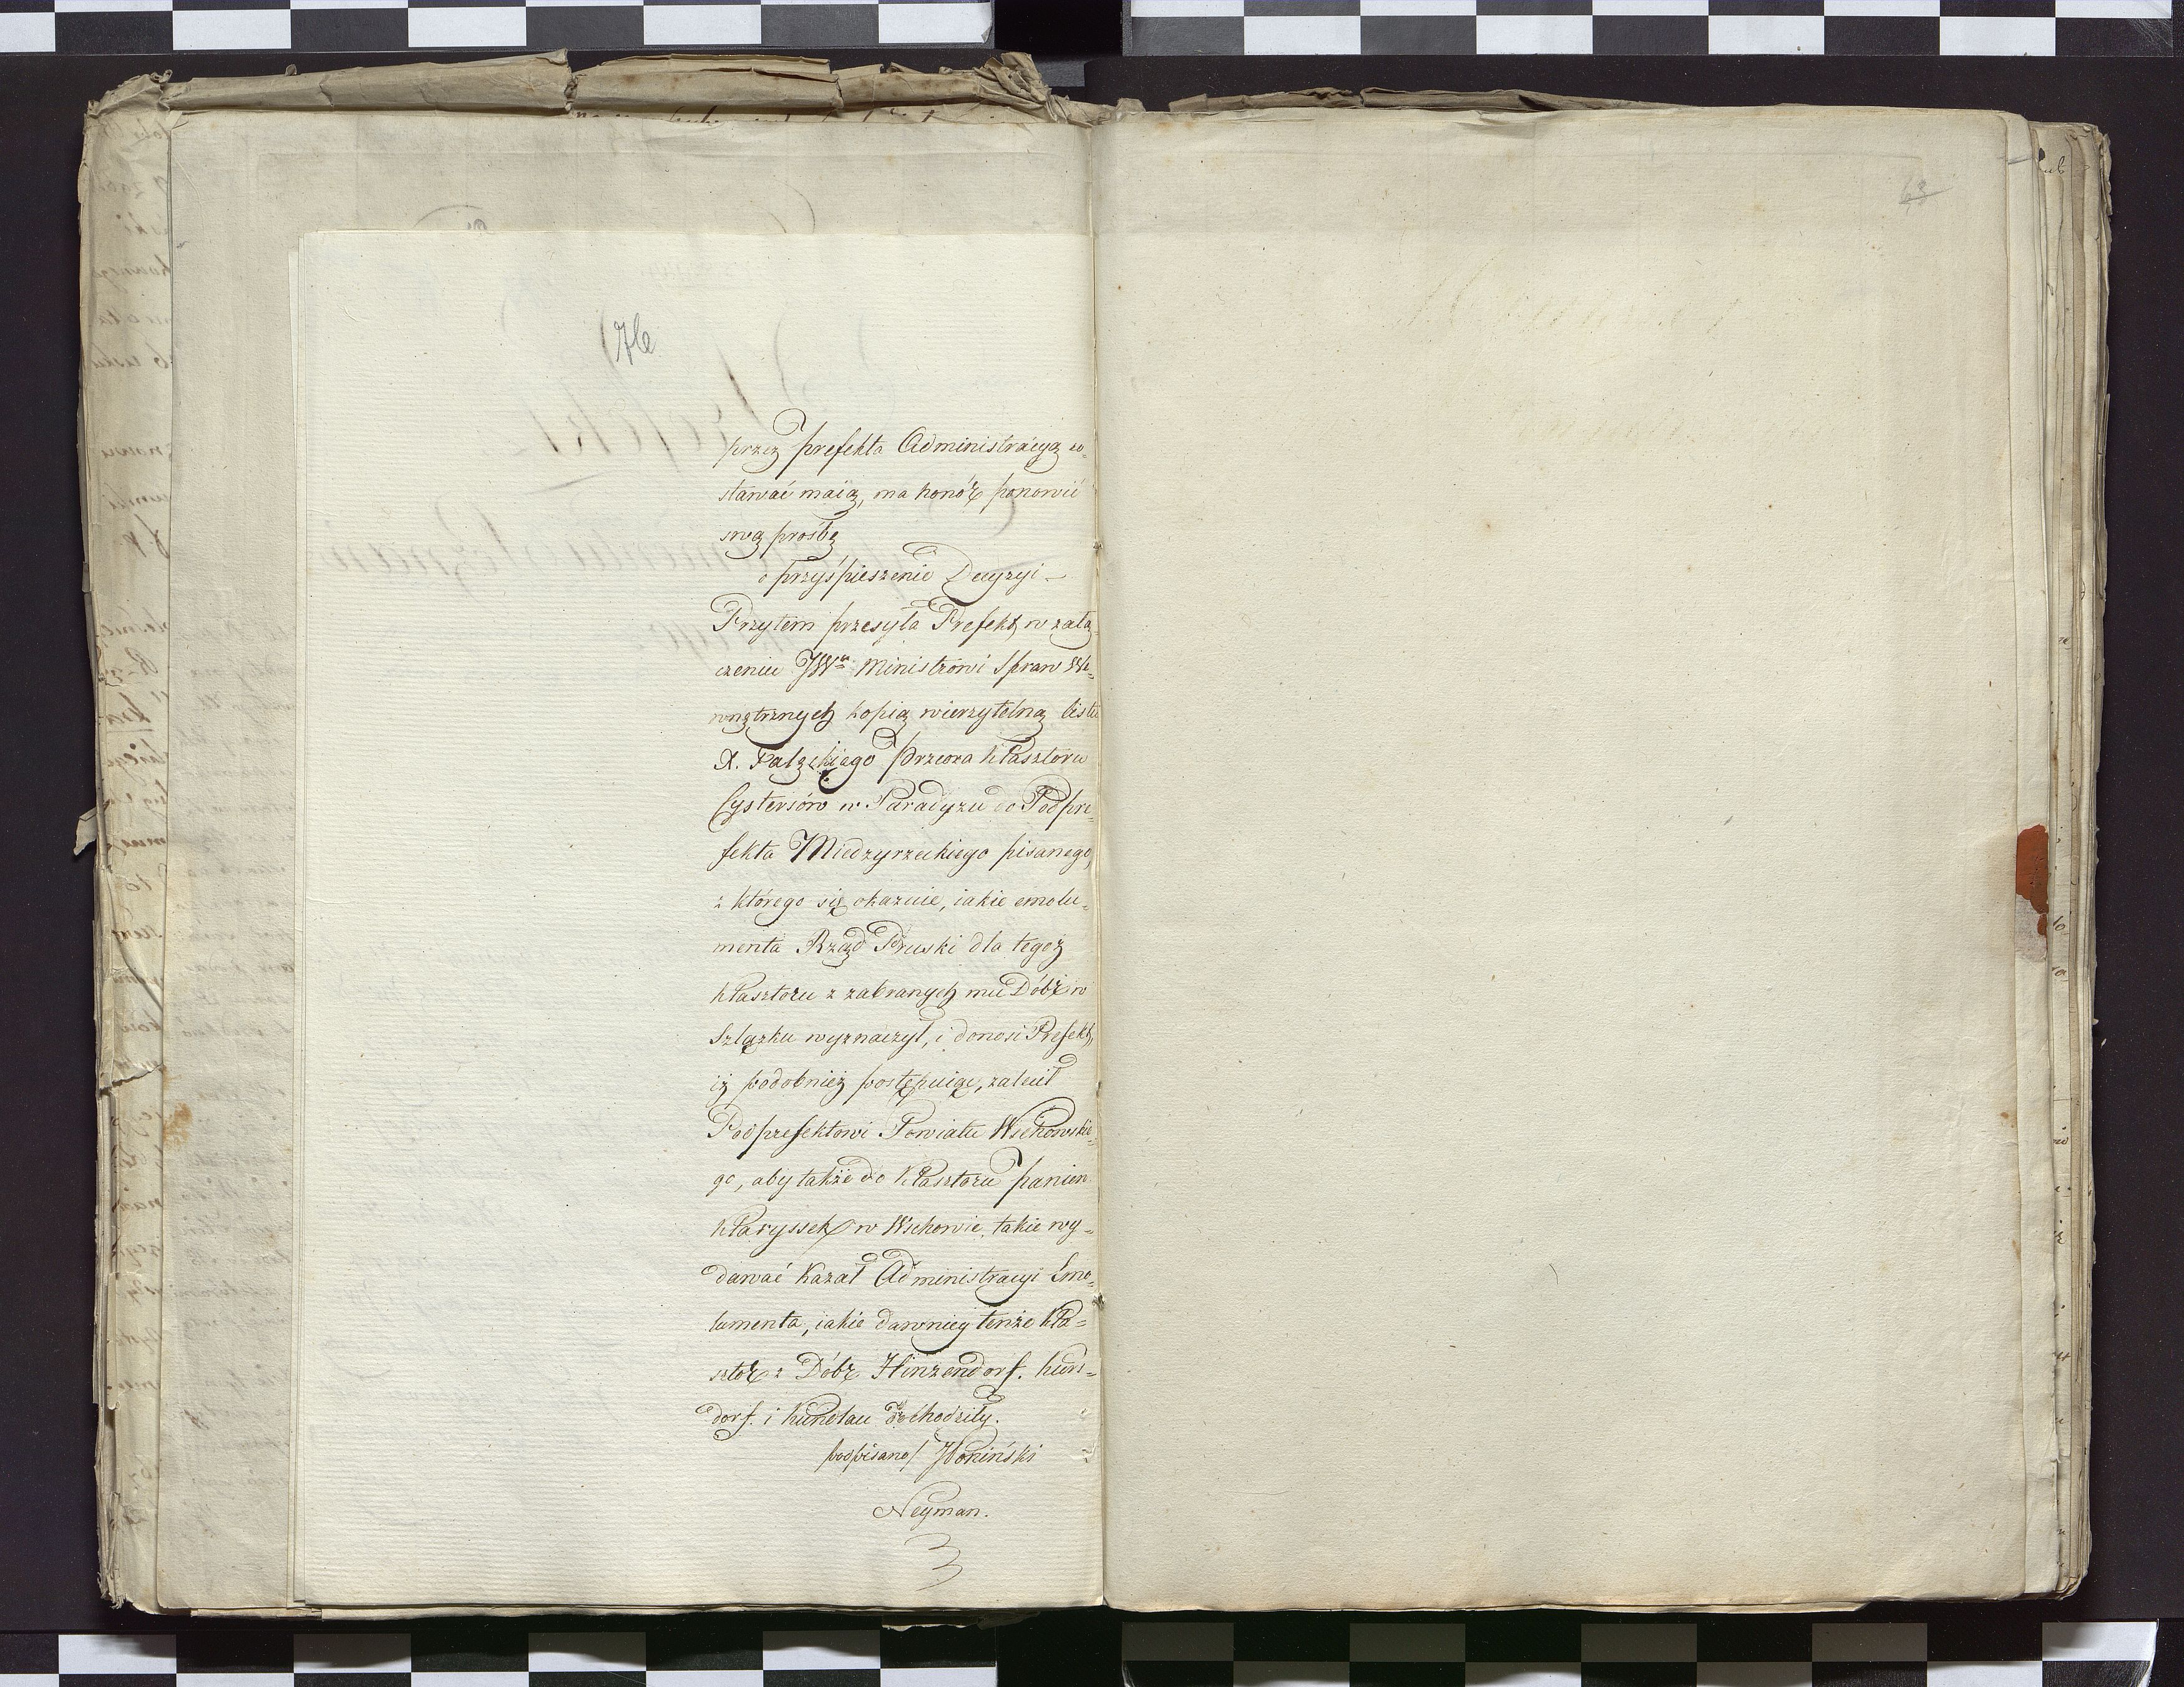 63
przez prefekta Administracyą zo=
stawać maią, ma honór ponowić
swą prośbę
o przyśpieszenie Decyzyi —
Przytém przesyła Prefekt w załą
czeniu JWu Ministrowi Spraw We=
wnętrznych kopią wierzytelną listu
X. Przeora klasztoru
Cystersów w Paradyzu do Podpre=
fekta Miedzyrzeckiego pisanego,
z którego się okazuie, iakie emolu=
menta Rząd Pruski dla tegoż
klasztoru z zabranych mu Dóbr w
Szlązku wyznaczył, i donosi Prefekt,
iż podobnież postępuiąc, zalecił
Podprefektowi Powiatu Wschowskie=
go, aby także do klasztoru panien
klaryssek w Wschowie, takie wy=
dawać kazał Administracyi Emo=
lumenta, iakie dawniey tenże kla=
sztor z Dóbr Hinzendorf. kurs=
dorf. i dochodziły.
podpisano/ Poniński
Neyman.